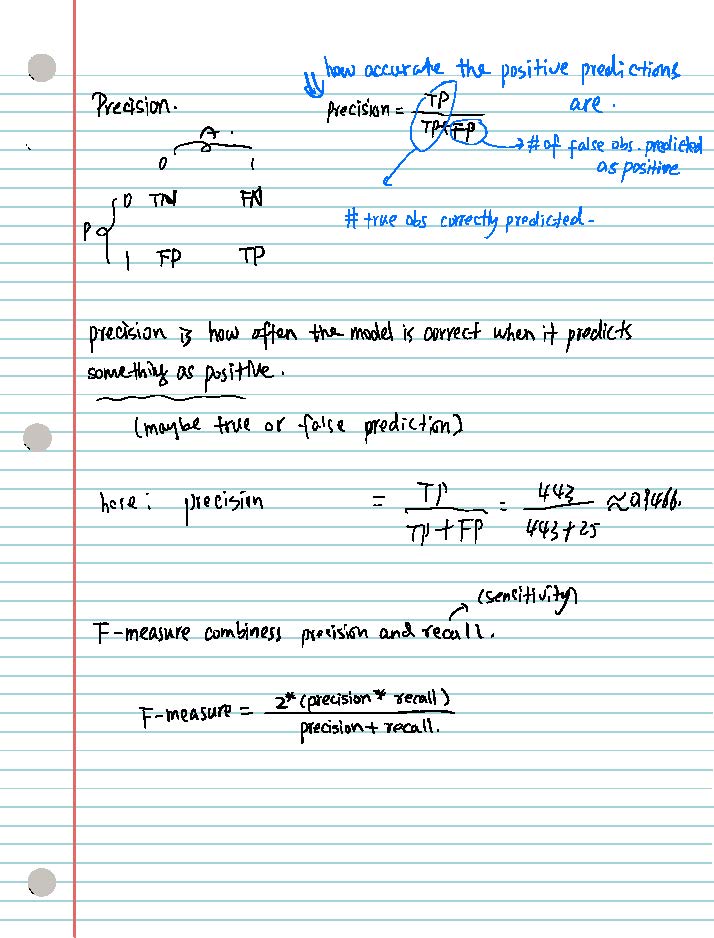 how accurate the positive predictions
are.
Precision.
precision = TP / TP+FP
→ # of false obs. predicted
as positive
# true obs correctly predicted.
A.
0 1
P 0 TN FN
1 FP TP
precision is how often the model is correct when it predicts
something as positive.
(maybe true or false prediction)
here: precision = TP / TP+FP = 443 / 443+25 ≈ 0.9466.
(sensitivity)
F-measure combiness precision and recall.
F-measure = 2*(precision * recall) / precision + recall.